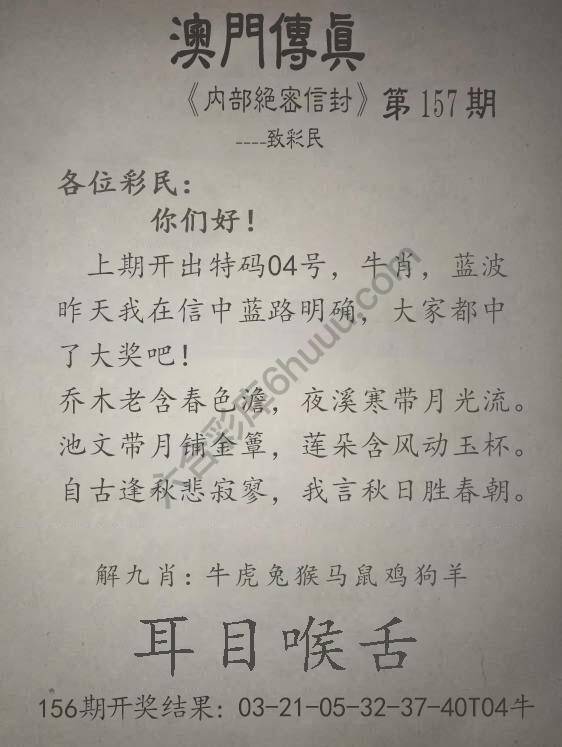 澳門傳真
《内部絕密信封》第157期
----致彩民
各位彩民：
你们好！
上期开出特码04号，牛肖，蓝波
昨天我在信中蓝路明确，大家都中
了大奖吧！
乔木老含春色澹，夜溪寒带月光流。
池文带月铺金簟，莲朵含风动玉杯。
自古逢秋悲寂寥，我言秋日胜春朝。
解九肖：牛虎兔猴马鼠鸡狗羊
耳目喉舌
156期开奖结果：03-21-05-32-37-40T04牛
六合彩库6huuu.com